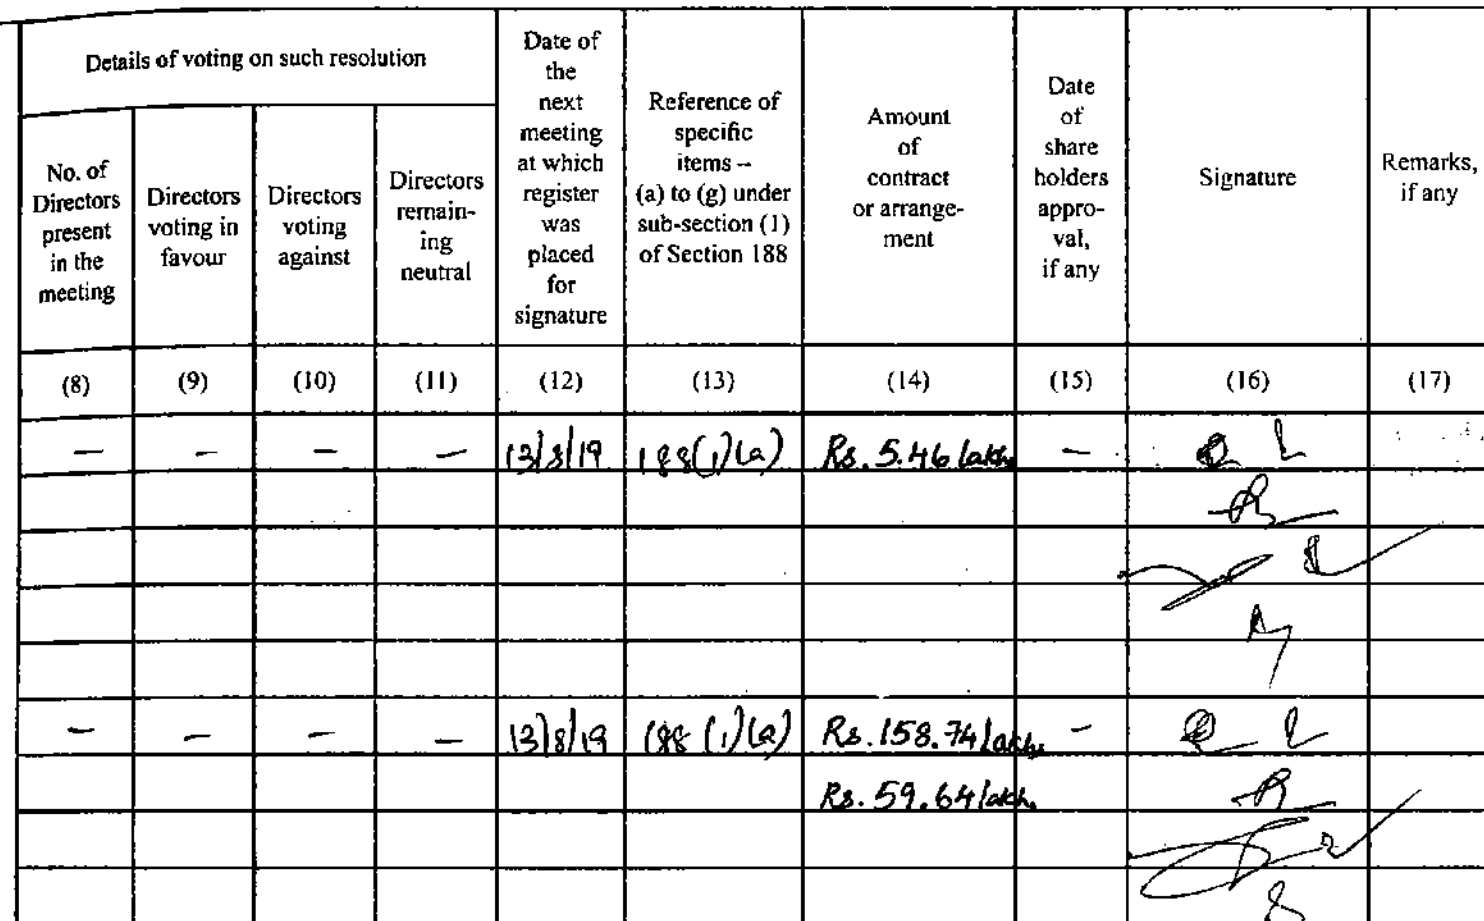 Details of voting on such resolution
No. of
Directors
present
in the
meeting
Directors
voting in
favour
Directors
voting
against
Directors
remain-
ing
neutral
Date of
the
next
meeting
at which
register
was
placed
for
signature
Reference of
specific
items –
(a) to (g) under
sub-section (1)
of Section 188
Amount
of
contract
or arrange-
ment
Date
of
share
holders
appro-
val,
if any
Signature
Remarks,
if any
(8) (9) (10) (11) (12) (13) (14) (15) (16) (17)
– – – – 13/8/19 188(1)(a) Rs. 5.46 lakhs –
– – – – 13/8/19 188(1)(a) Rs. 158.74 lakhs –
Rs. 59.64 lakhs